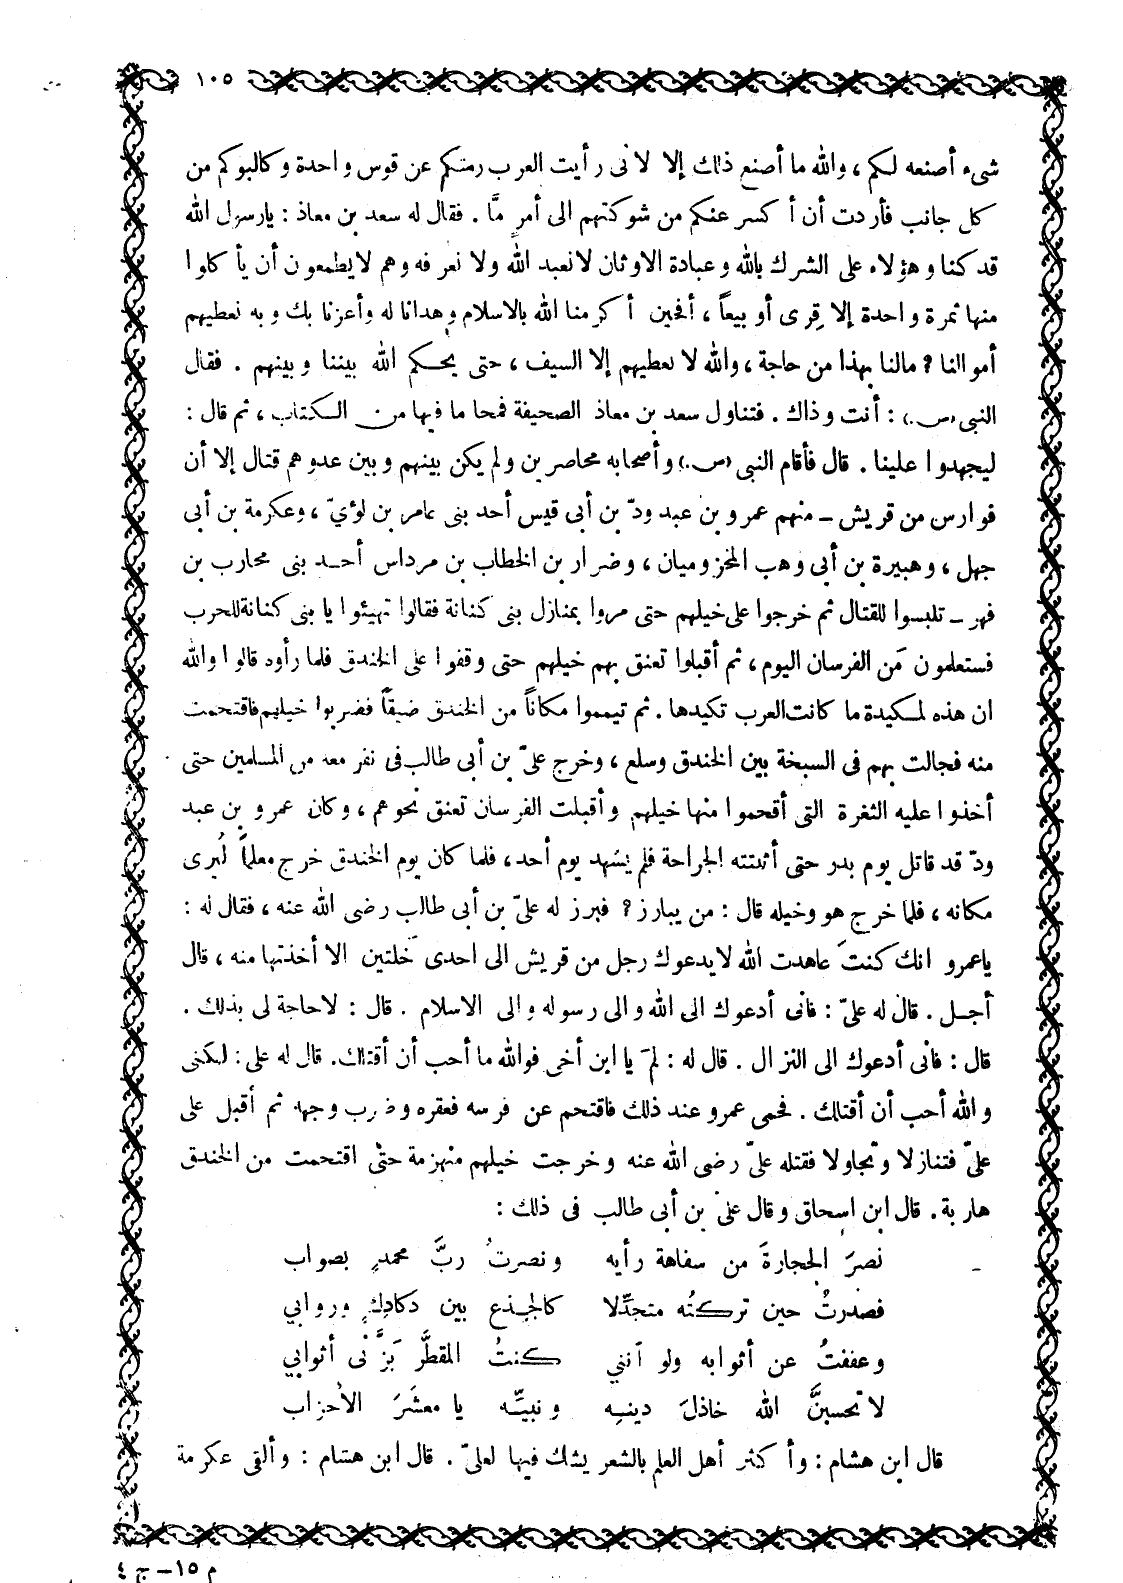 ١٠٥
شىء أصنعه لكم ، والله ما أصنع ذلك إلا لانى رأيت العرب رمتكم عن قوس واحدة وكالبوكم من
كل جانب فأردت أن أكسر عنكم من شوكتهم الى أمرٍ مَّا . فقال له سعد بن معاذ : يارسول الله
قد كنا وهؤلاء على الشرك بالله وعبادة الاوثان لانعبد الله ولا نعرفه وهم لايطمعون أن يأكلوا
منها تمرة واحدة إلا قِرى أو بيعاً ، أفحين أكرمنا الله بالاسلام وهدانا له وأعزنا بك وبه نعطيهم
أموالنا ? مالنا بهذا من حاجة ، والله لا نعطيهم إلا السيف ، حتى يحكم الله بيننا وبينهم . فقال
النبى (س.) : أنت وذاك . فتناول سعد بن معاذ الصحيفة فمحا ما فيها من الكتاب ، ثم قال :
ليجهدوا علينا . قال فأقام النبى (س.) وأصحابه محاصرين ولم يكن بينهم وبين عدوهم قتال إلا أن
فوارس من قريش ــ منهم عمرو بن عبد ودّ بن أبى قيس أحد بنى عامر بن لؤىّ ، وعكرمة بن أبى
جهل ، وهبيرة بن أبى وهب المخزوميان ، وضرار بن الخطاب بن مرداس أحد بنى محارب بن
فهر ــ تلبسوا للقتال ثم خرجوا على خيلهم حتى مروا بمنازل بنى كنانة فقالوا تهيئوا يا بنى كنانة للحرب
فستعلمون مَن الفرسان اليوم ، ثم أقبلوا تعنق بهم خيلهم حتى وقفوا على الخندق فلما رأوه قالوا والله
ان هذه لمكيدة ما كانت العرب تكيدها . ثم تيمموا مكاناً من الخندق ضيقاً فضربوا خيلهم فاقتحمت
منه فجالت بهم فى السبخة بين الخندق وسلع ، وخرج علىّ بن أبى طالب فى نفر معه من المسلمين حتى
أخذوا عليه الثغرة التى أقحموا منها خيلهم وأقبلت الفرسان تعنق نحوهم ، وكان عمرو بن عبد
ودّ قد قاتل يوم بدر حتى أثبتته الجراحة فلم يشهد يوم أحد ، فلما كان يوم الخندق خرج معلماً ليُرى
مكانه ، فلما خرج هو وخيله قال : من يبارز ? فبرز له علىّ بن أبى طالب رضى الله عنه ، فقال له :
ياعمرو انك كنتَ عاهدت الله لايدعوك رجل من قريش الى احدى خلتين الا أخذتها منه ، قال
أجل . قال له علىّ : فانى أدعوك الى الله والى رسوله والى الاسلام . قال : لاحاجة لى بذلك .
قال : فانى أدعوك الى النزال . قال له : لمَ يا ابن أخى فوالله ما أحب أن أقتلك . قال له على : لكنى
والله أحب أن أقتلك . فحمى عمرو عند ذلك فاقتحم عن فرسه فعقره وضرب وجهه ثم أقبل على
علىّ فتنازلا وتجاولا فقتله علىّ رضى الله عنه وخرجت خيلهم منهزمة حتى اقتحمت من الخندق
هاربة . قال ابن اسحاق وقال علىّ بن أبى طالب فى ذلك :
نصرَ الحجارةَ من سفاهة رأيه ونصرتُ ربَّ محمدٍ بصواب
فصدرتُ حين تركتُه متجدِّلا كالجذع بين دكادِكٍ وروابي
وعففتُ عن أثوابه ولو آنني كنتُ المقطَّر بَزَّنى أثوابي
لاتحسبنَّ الله خاذلَ دينِه ونبيِّه يا معشَرَ الأحزاب
قال ابن هشام : وأكثر أهل العلم بالشعر يشك فيها لعلىّ . قال ابن هشام : وألقى عكرمة
م ١٥ – ج ٤